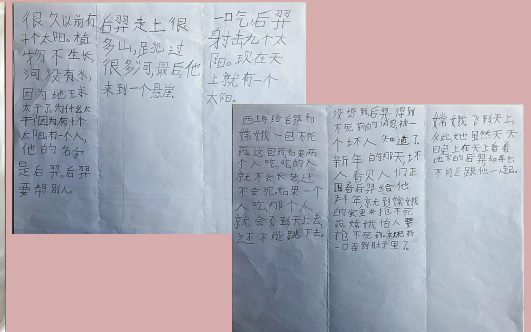 很久以前有
十个太阳。植
物不生长,
河没有水,
因为地球
太干了。为什么太
干?因为有十个
太阳。有一个人,
他的名字
是后羿。后羿
要帮别人。
后羿走上很
多山,跳过
很多河,最后他
来到一个悬崖
一口气,后羿
射击九个太
阳。现在天
上就有一个
太阳。
西王母给后羿和
嫦娥一包不死
药 这包药如果两
个人吃,吃的人
就不会长老还
不会死。如果一个
人吃,那个人
就会飞到天上去,
还不能跳下去。
没想到后羿得到
不死药的消息被一
个坏人知道了。
新年的那天坏
人看见人们正
围着后羿给他
拜年 就到嫦娥
的家里来抢不死
药 嫦娥怕人要
抢不死药,就把药
一口吞到肚子里了。
嫦娥飞到天上,
从此她虽然天天
晚上在天上看着
地下的后羿 却再也
不能跟他一起。